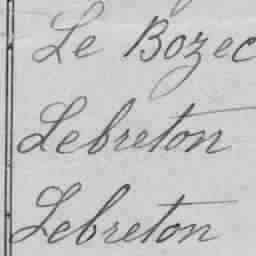 Le Bozec
Lebreton
Lebreton